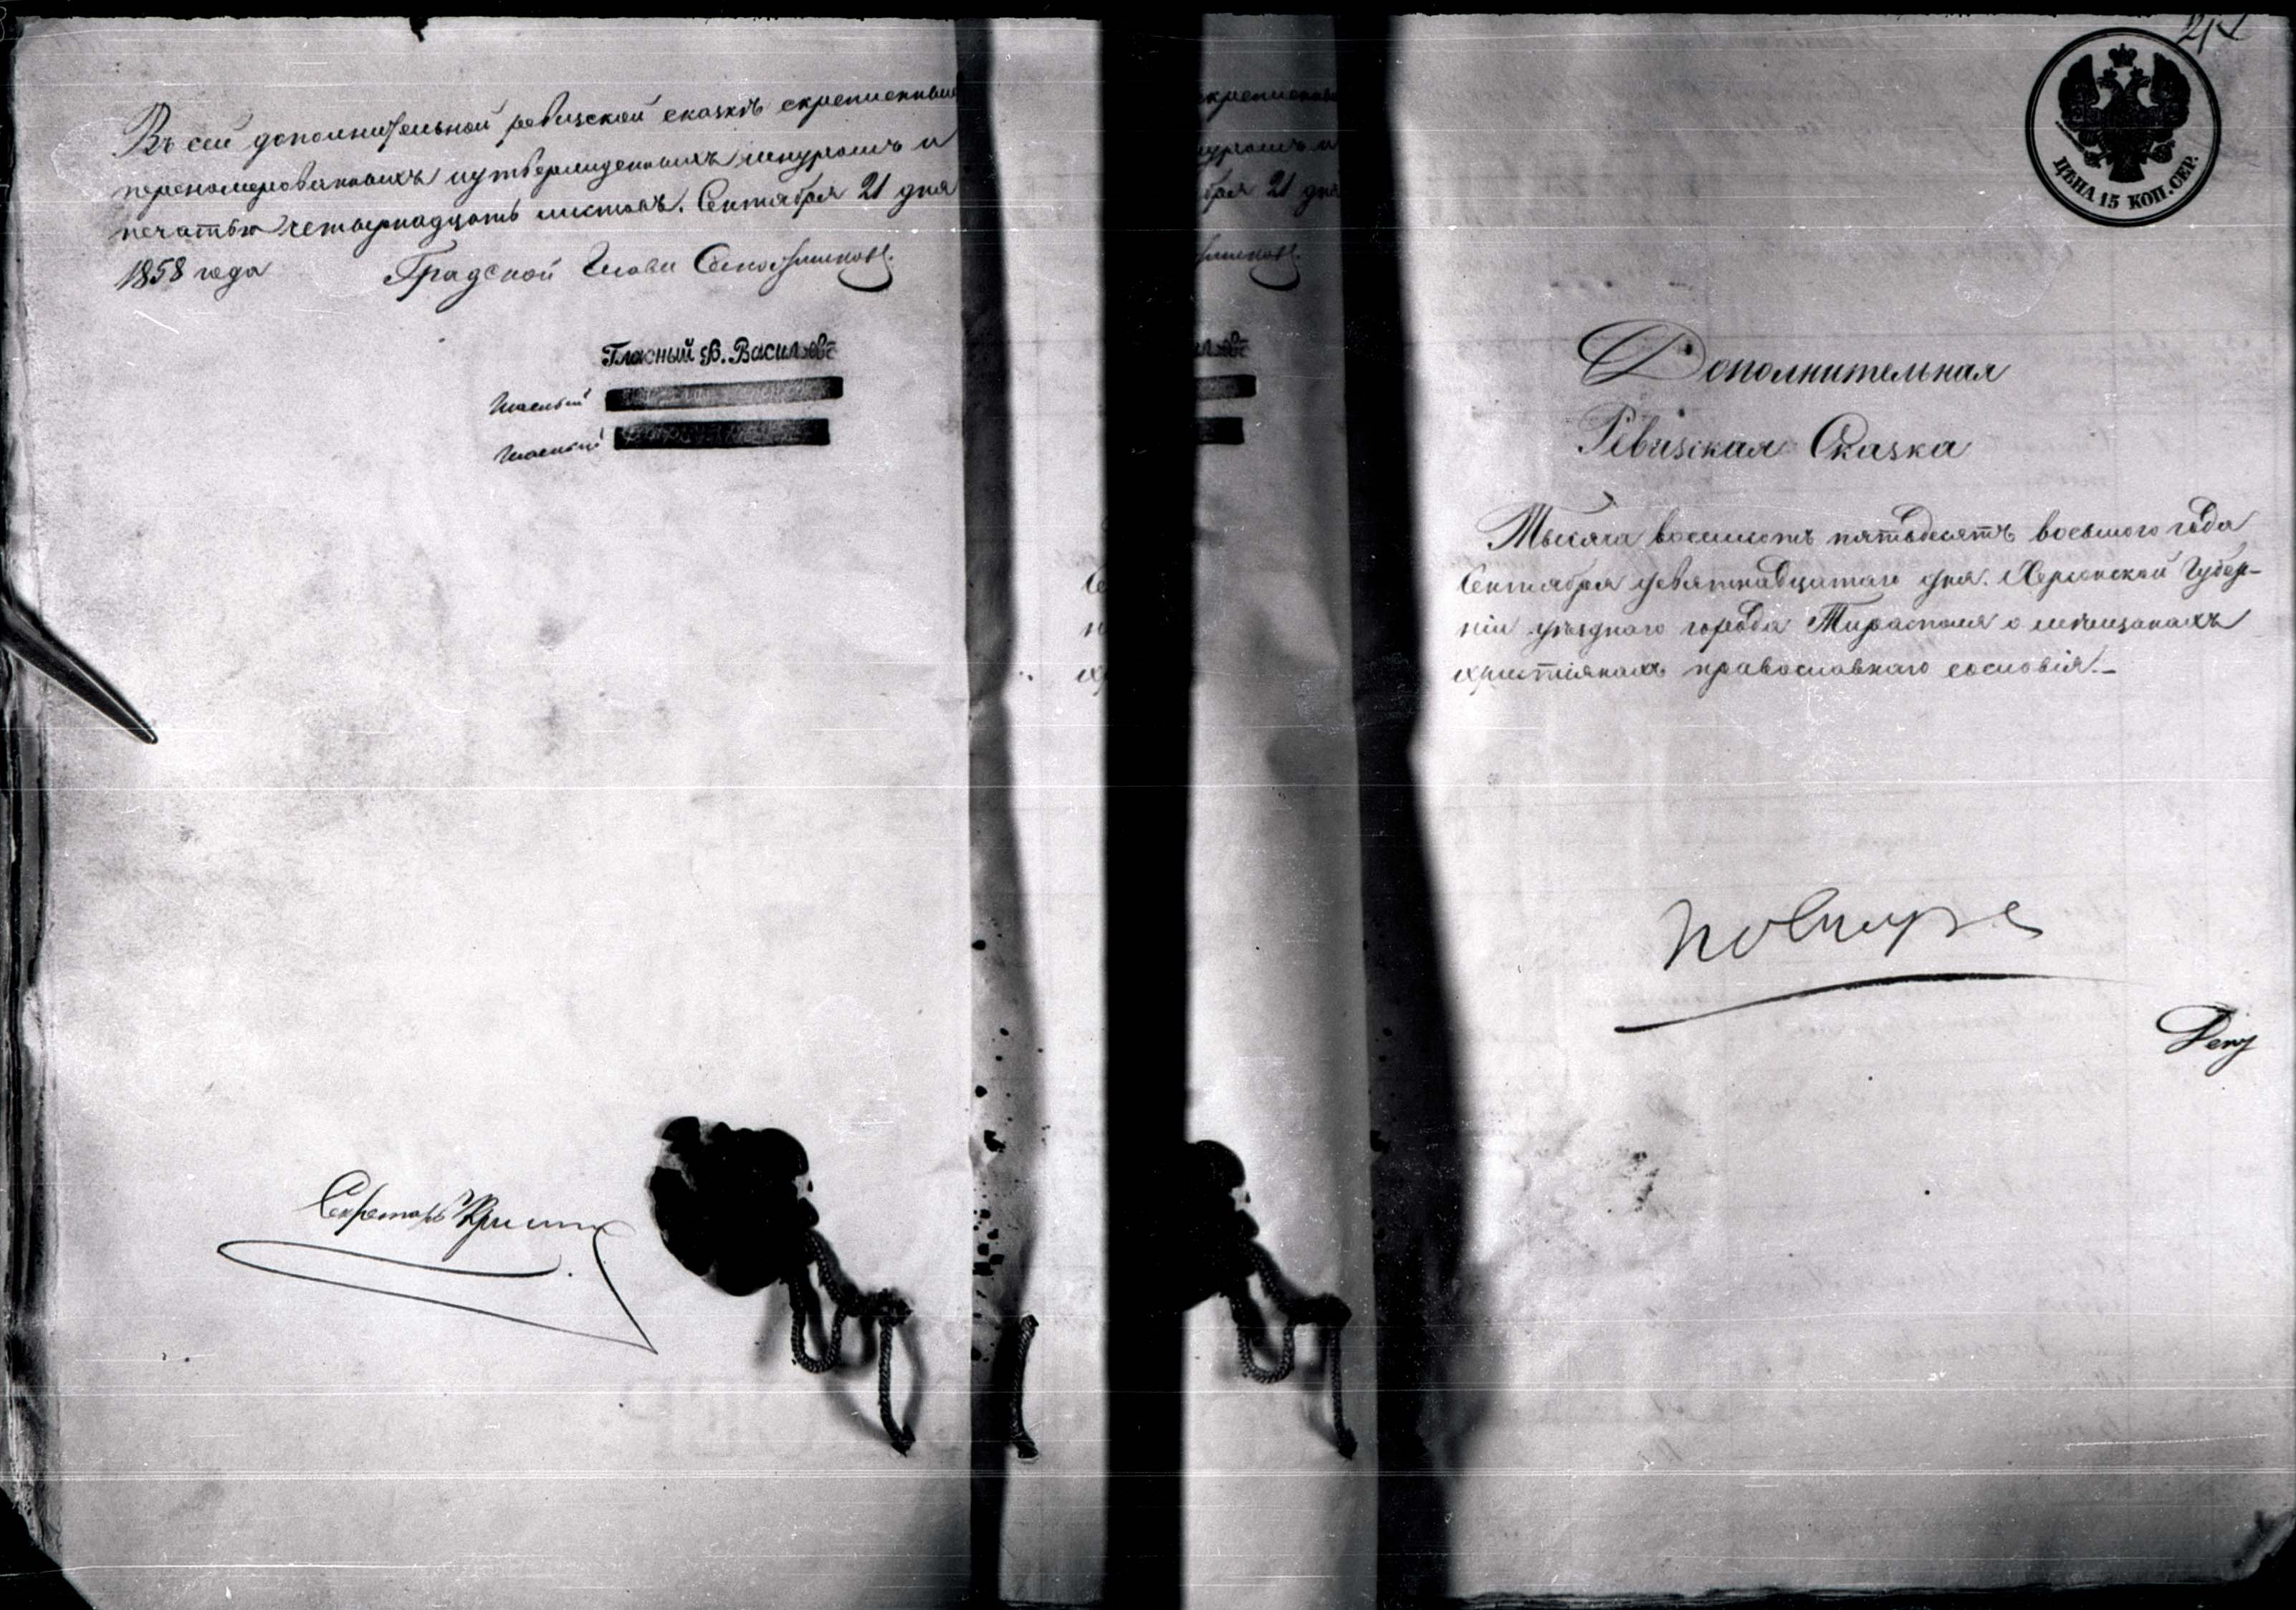 Въ сей дополнительной ревизской сказкѣ скрепленныхъ
перенумерованныхъ и утвержденныхъ шнуромъ и
печатью четырнадцать листовъ. Сентября 21 дня
1858 года Градской Глава
Гласный Ѳ. Васильевъ
Гласный
Гласный
Секретарь
21
ЦѢНА 15 КОП. СЕР.
Дополнительная
Ревизская Сказка
Тысяча восемьсотъ пятьдесятъ восьмого года
Сентября девятнадцатаго дня. Херсонской Губер-
ніи уѣзднаго города Тирасполя о мѣщанахъ
христіянахъ православнаго сословія.